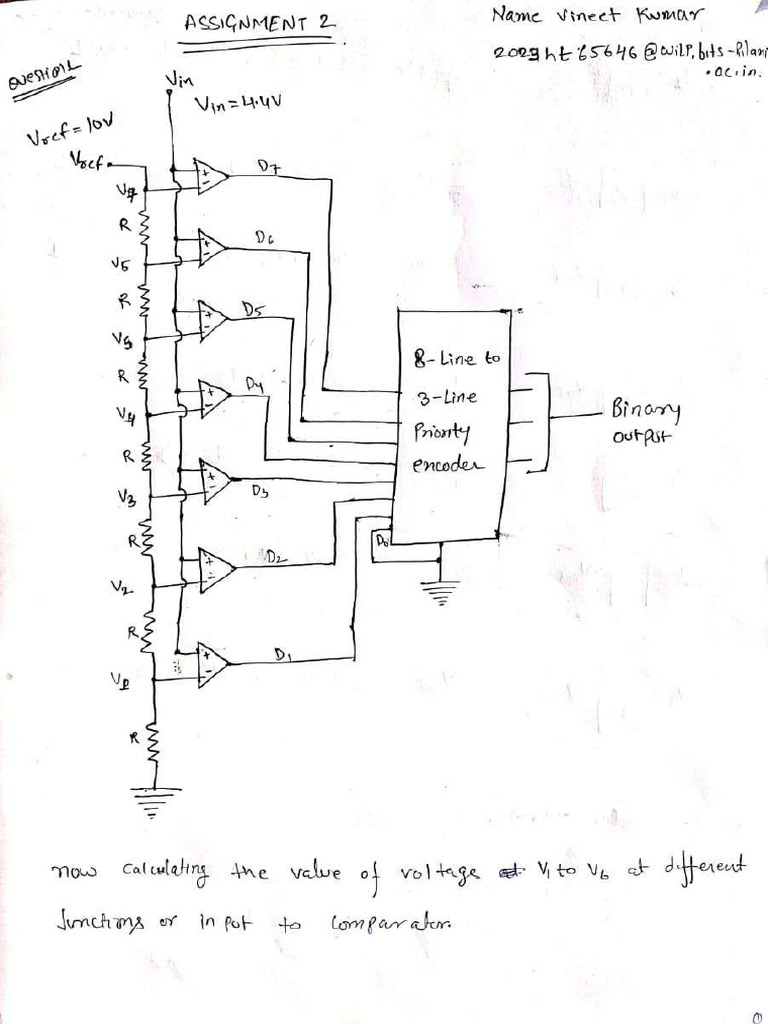 ASSIGNMENT 2
Name Vineet Kumar
2023ht65646@wilp.bits-Pilani
.ac.in.
QUESTION 1
Vin
Vin = 4.4V
Vref = 10V
Vref
D7
V7
R
D6
V6
R
D5
V5
R
D4
V4
R
D3
V3
R
D2
V2
R
D1
V1
R
8-Line to
3-Line
Priority
encoder
D0
Binary
output
now calculating the value of voltage at V1 to V6 at different
Junctions or input to comparator.